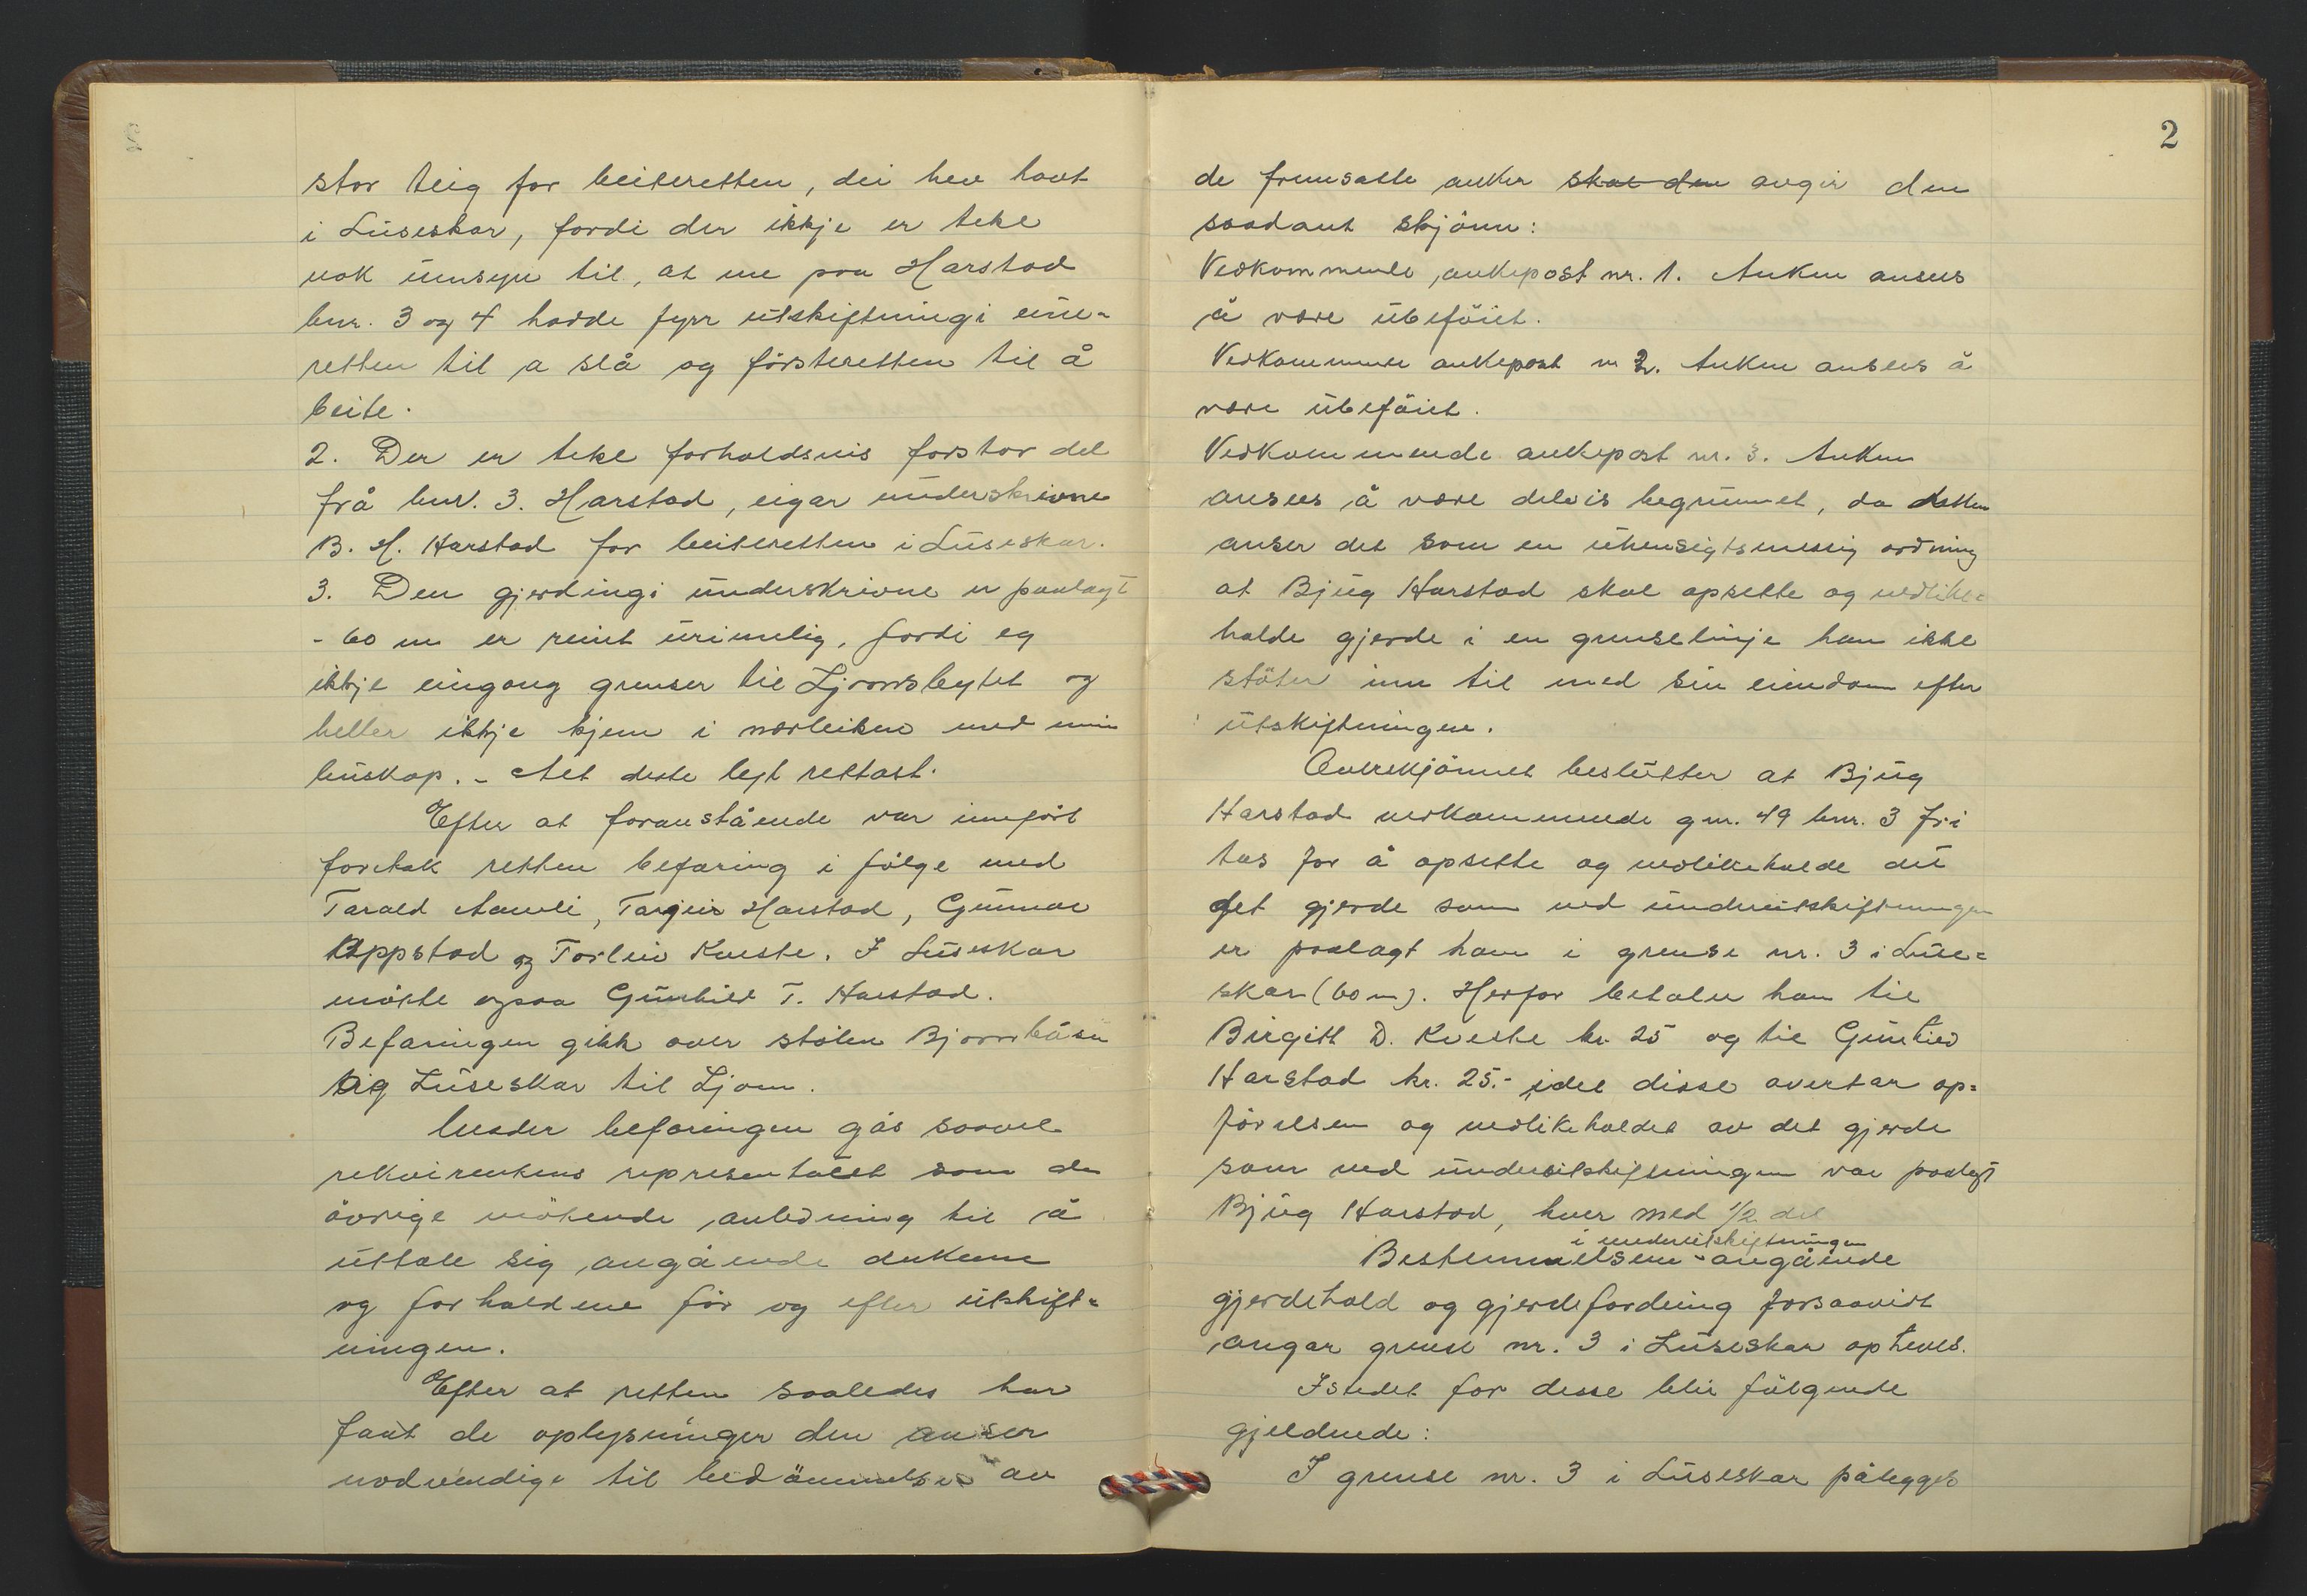 stor teig for beiteretten, dei hev havt
i Luseskar, fordi der ikkje er teke
nok umsyn til, at me paa Harstad
bnr. 3 og 4 hadde fyrr utskiftningi eine-
retten til a slå og försteretten til å
beite.
2. Der er teke forholdsvis forstor del
frå bnr. 3. Harstad, eigar underskrivne
B. H. Harstad for beiteretten i Luseskar.
3. Den gjerdingi underskrivne er paalagt
- 60 m er reint urimelig, fordi eg
ikkje eingang grenser til Ljomsbeytet og
heller ikkje kjem i nærleiken med min
buskap. - Alt dette legt rettast.
Efter at foranstående var innfört
foretok retten befaring i fölge med
Tarald Aamli, Targeir Harstad, Gunnar
Uppstad og Torleiv Kveste. I Luseskar
mötte ogsaa Gunhild T. Harstad.
Befaringen gikk over stölen Bjornbåsen
og Luseskar til Ljom.
Under befaringen gås saavel
rekvirentens representant som de
övrige mötende anledning til å
uttale sig angående ankene
og forholdene för og efter utskift-
ningen.
Efter at retten saaledes har
faat de oplysninger den anser
nodvendige til bedömmelse av
2
de fremsatte anker skal den avgir den
saadant skjönn:
Vedkommende ankepost nr. 1. Anken ansees
å være ubeföiet.
Vedkommende ankepost nr 2. Anken ansees å
være ubeföiet.
Vedkommende ankepost nr. 3. Anken
ansees å være delvis begrunnet, da retten
anser det som en uhensigtsmessig ordning
at Bjug Harstad skal opsette og vedlike-
holde gjerde i en grenselinje han ikke
stöter inn til med sin eiendom efter
utskiftningen.
Overskjönnet beslutter at Bjug
Harstad vedkommende gnr. 49 bnr. 3 fri
tas for å opsette og vedlikeholde det
det gjerde som ved underutskiftningen
er paalagt ham i grense nr. 3 i Luse-
skar (60 m). Herfor betaler han til
Birgitt D. Kveste kr. 25 og til Gunhild
Harstad kr. 25.- idet disse overtar op-
förelsen og vedlikeholdet av det gjerde
som ved underutskiftningen var paalagt
Bjug Harstad, hver med 1/2 del
i underutskiftningen
Bestemmelsene angående
gjerdehold og gjerdefordeling forsaavidt
angar grense nr. 3 i Luseskar opheves.
Istedet for desse blir fölgende
gjeldende:
I grense nr. 3 i Luseskar pålegges